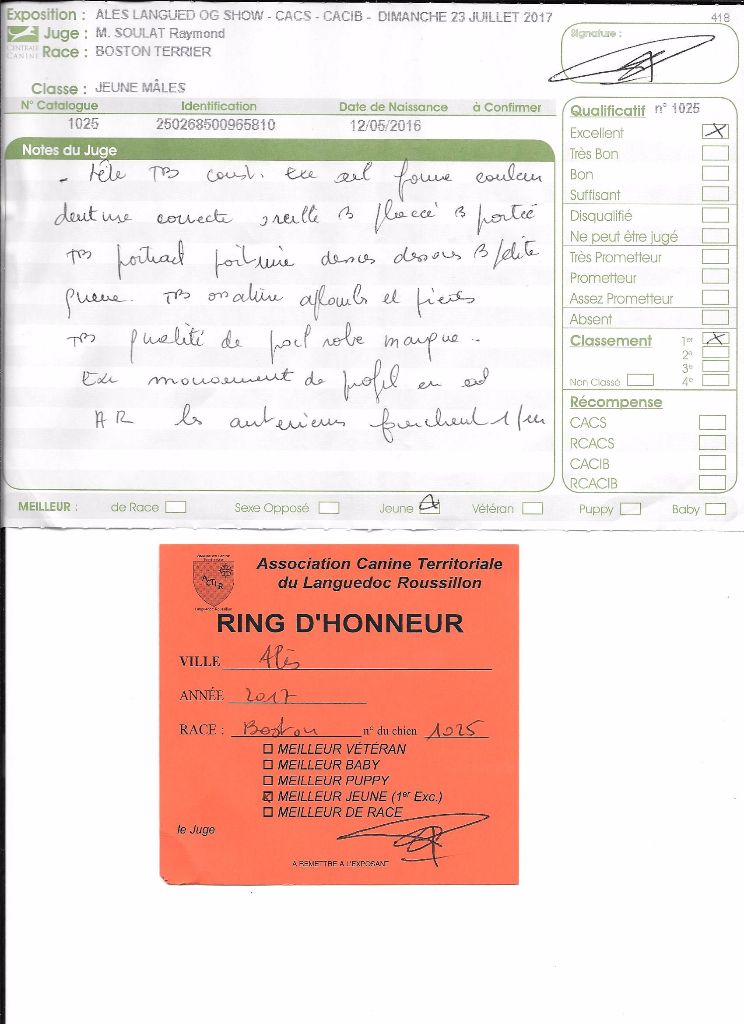 Exposition : ALES LANGUED OG SHOW - CACS - CACIB - DIMANCHE 23 JUILLET 2017
418
CENTRALE CANINE
Juge : M. SOULAT Raymond
Race : BOSTON TERRIER
Signature :
Classe : JEUNE MÂLES
N° Catalogue Identification Date de Naissance à Confirmer
1025 250268500965810 12/05/2016
Notes du Juge
- tête TB const. Exc œil forme couleur
denture correcte oreille B placée B portée
TB poitrail poitrine dessus dessous B petite
queue. TB ossature aplombs et pieds
TB qualité de poil robe marque.
Exc mouvement de profil en
AR les antérieurs
Qualificatif n° 1025
Excellent X
Très Bon
Bon
Suffisant
Disqualifié
Ne peut être jugé
Très Prometteur
Prometteur
Assez Prometteur
Absent
Classement 1er X
2e
3e
Non Classé 4e
Récompense
CACS
RCACS
CACIB
RCACIB
MEILLEUR : de Race Sexe Opposé Jeune Vétéran Puppy Baby
Association Canine Territoriale
du Languedoc Roussillon
ACTLR
Languedoc Roussillon
RING D'HONNEUR
VILLE Alès
ANNÉE 2017
RACE : Boston n° du chien 1025
MEILLEUR VÉTÉRAN
MEILLEUR BABY
MEILLEUR PUPPY
MEILLEUR JEUNE (1er Exc.)
MEILLEUR DE RACE
le Juge
A REMETTRE A L'EXPOSANT